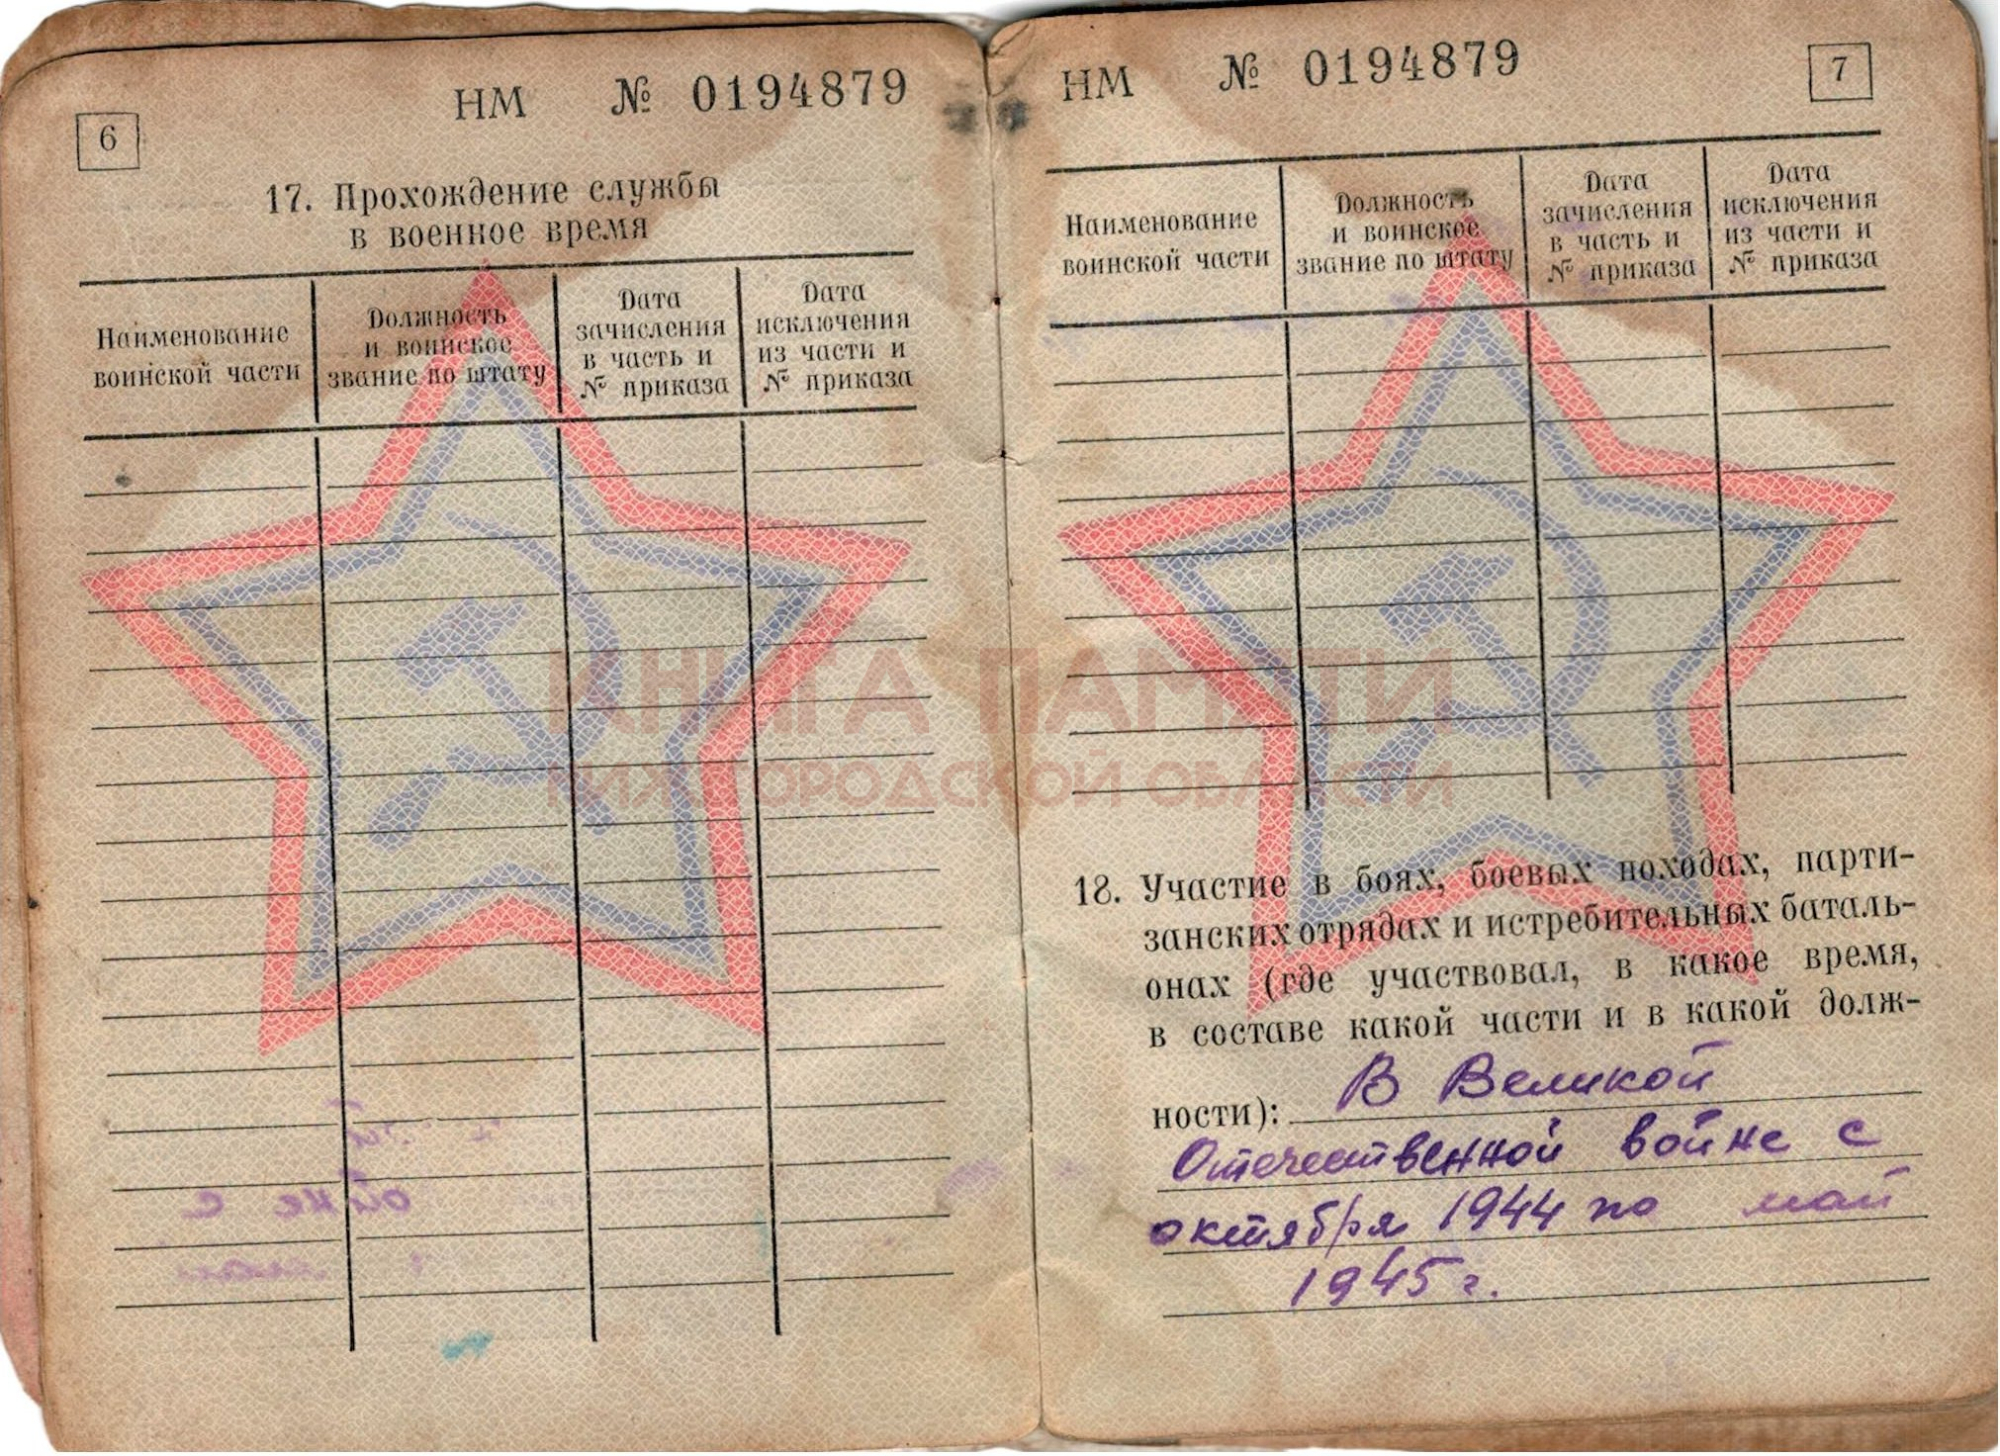 6
НМ № 0194879
17. Прохождение службы
в военное время
Наименование
воинской части
Должность
и воинское
звание по штату
Дата
зачисления
в часть и
№ приказа
Дата
исключения
из части и
№ приказа
НМ № 0194879
7
Наименование
воинской части
Должность
и воинское
звание по штату
Дата
зачисления
в часть и
№ приказа
Дата
исключения
из части и
№ приказа
КНИГА ПАМЯТИ
НИЖЕГОРОДСКОЙ ОБЛАСТИ
18. Участие в боях, боевых походах, парти-
занских отрядах и истребительных баталь-
онах (где участвовал, в какое время,
в составе какой части и в какой долж-
ности): В Великой
Отечественной войне с
октября 1944 по май
1945 г.